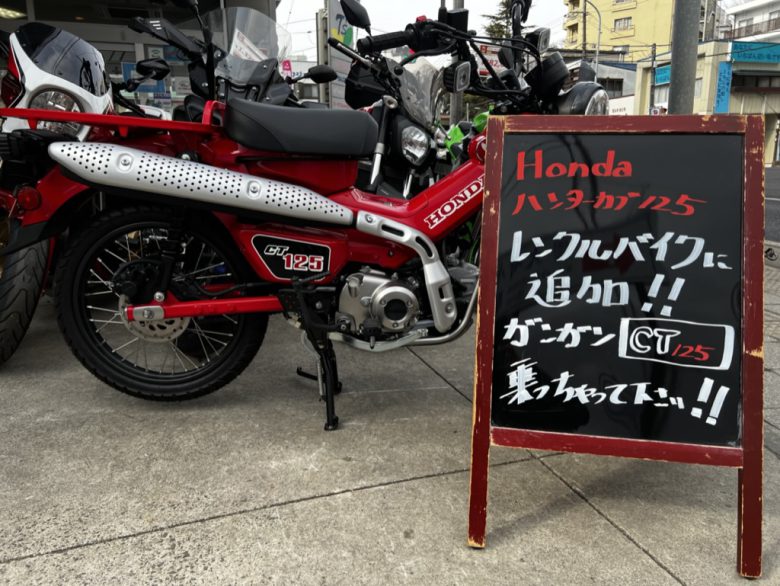 Honda
ハンターカブ125
レンタルバイクに
追加!!
ガンガン CT125
乗っちゃって下さいッ!!
HONDA
CT
125